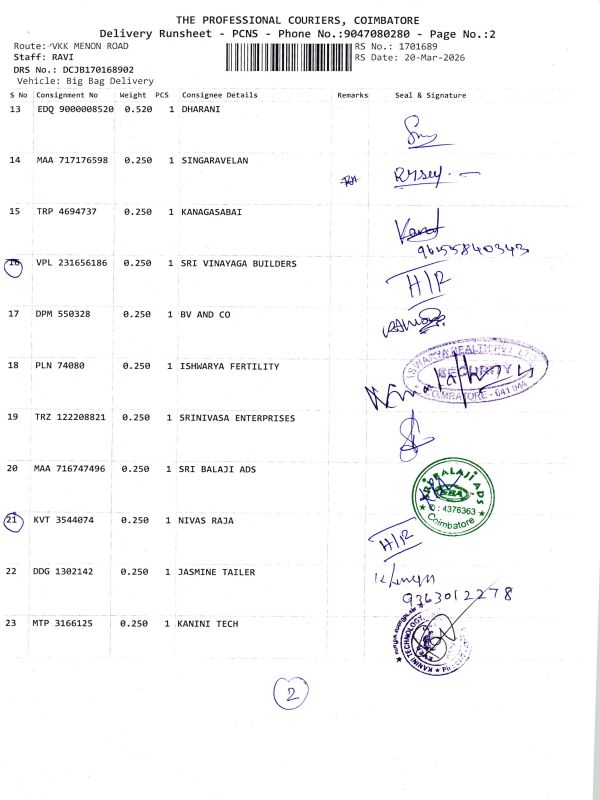 THE PROFESSIONAL COURIERS, COIMBATORE
Delivery Runsheet - PCNS - Phone No.:9047080280 - Page No.:2
Route: VKK MENON ROAD
RS No.: 1701689
Staff: RAVI
RS Date: 20-Mar-2026
DRS No.: DCJB170168902
Vehicle: Big Bag Delivery
S No Consignment No Weight PCS Consignee Details Remarks Seal & Signature
13 EDQ 9000008520 0.520 1 DHARANI
14 MAA 717176598 0.250 1 SINGARAVELAN
15 TRP 4694737 0.250 1 KANAGASABAI
9655840343
16 VPL 231656186 0.250 1 SRI VINAYAGA BUILDERS
H/R
17 DPM 550328 0.250 1 BV AND CO
18 PLN 74080 0.250 1 ISHWARYA FERTILITY
ISWARYA HEALTH PVT. LTD
SECURITY
COIMBATORE - 641 044
19 TRZ 122208821 0.250 1 SRINIVASA ENTERPRISES
20 MAA 716747496 0.250 1 SRI BALAJI ADS
SRI BALAJI ADS
SBA
: 4376363
Coimbatore
21 KVT 3544074 0.250 1 NIVAS RAJA
H/R
22 DDG 1302142 0.250 1 JASMINE TAILER
9363012278
23 MTP 3166125 0.250 1 KANINI TECH
KANINI TECHNOLOGY
2